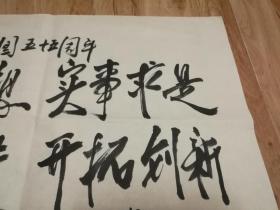 国五十五周年
实事求是
开拓创新